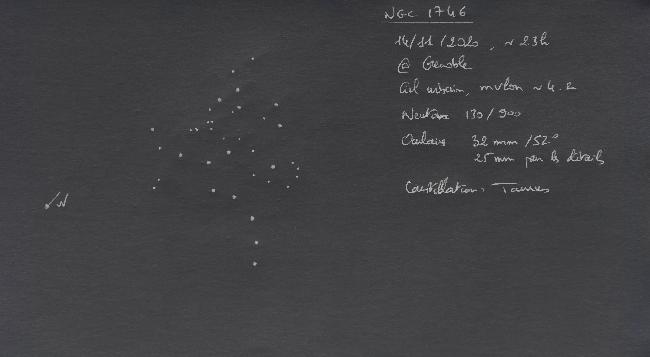 NGC 1746
14/11/2020, ~ 23h
@ Grenoble
Ciel urbain, mvlon ~ 4.2
Newton 130/900
Oculaire 32 mm /52°
25 mm pour les détails
Constellation: Taurus
N